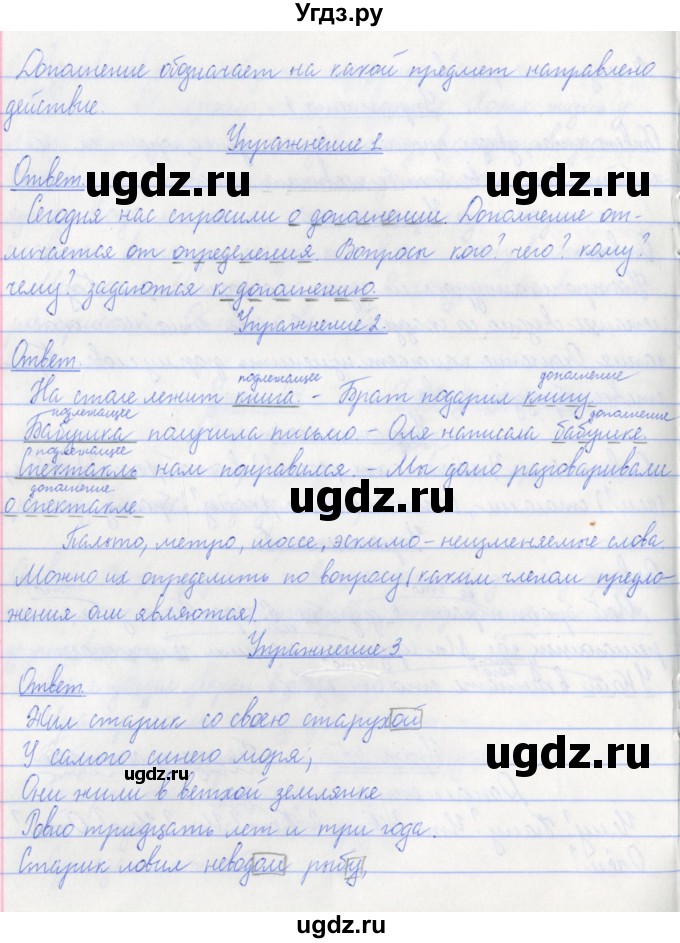 Угдз.ру
Дополнение обозначает на какой предмет направлено
действие.
Упражнение 1
Ответ.
ugdz.ru ugdz.ru
Сегодня нас спросили о дополнении. Дополнение от-
личается от определения. Вопросы кого? чего? кому?
чему? задаются к дополнению.
Упражнение 2.
Ответ.
подлежащее дополнение
На столе лежит книга. - Брат подарил книгу.
подлежащее дополнение
Бабушка получила письмо - Оля написала бабушке.
подлежащее
Спектакль нам понравился. - Мы домо разговаривали
дополнение
о спектакле.
ugdz.ru
Пальто, метро, шоссе, эскимо - неизменяемые слова.
Можно их определить по вопросу (каким членом предло-
жения они являются).
Упражнение 3
Ответ
Жил старик со своею старухой
У самого синего моря;
ugdz.ru ugdz.ru
Они жили в ветхой землянке
Ровно тридцать лет и три года.
Старик ловил неводом рыбу,
ugdz.ru